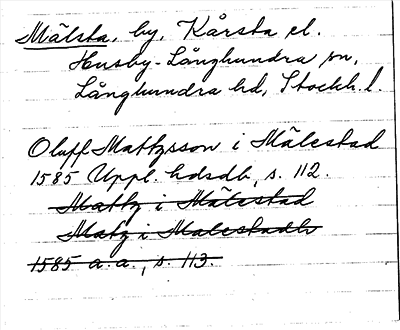 Mälsta, by, Kårsta el.
Husby-Långhundra sn,
Långhundra hd, Stockh. l.
Oluff Mattzsson i Mälestad
1585 Uppl. hdsdb, s. 112.
Mattz i Mälestad
Matz i Malestadh
1585 a.a., s. 113.